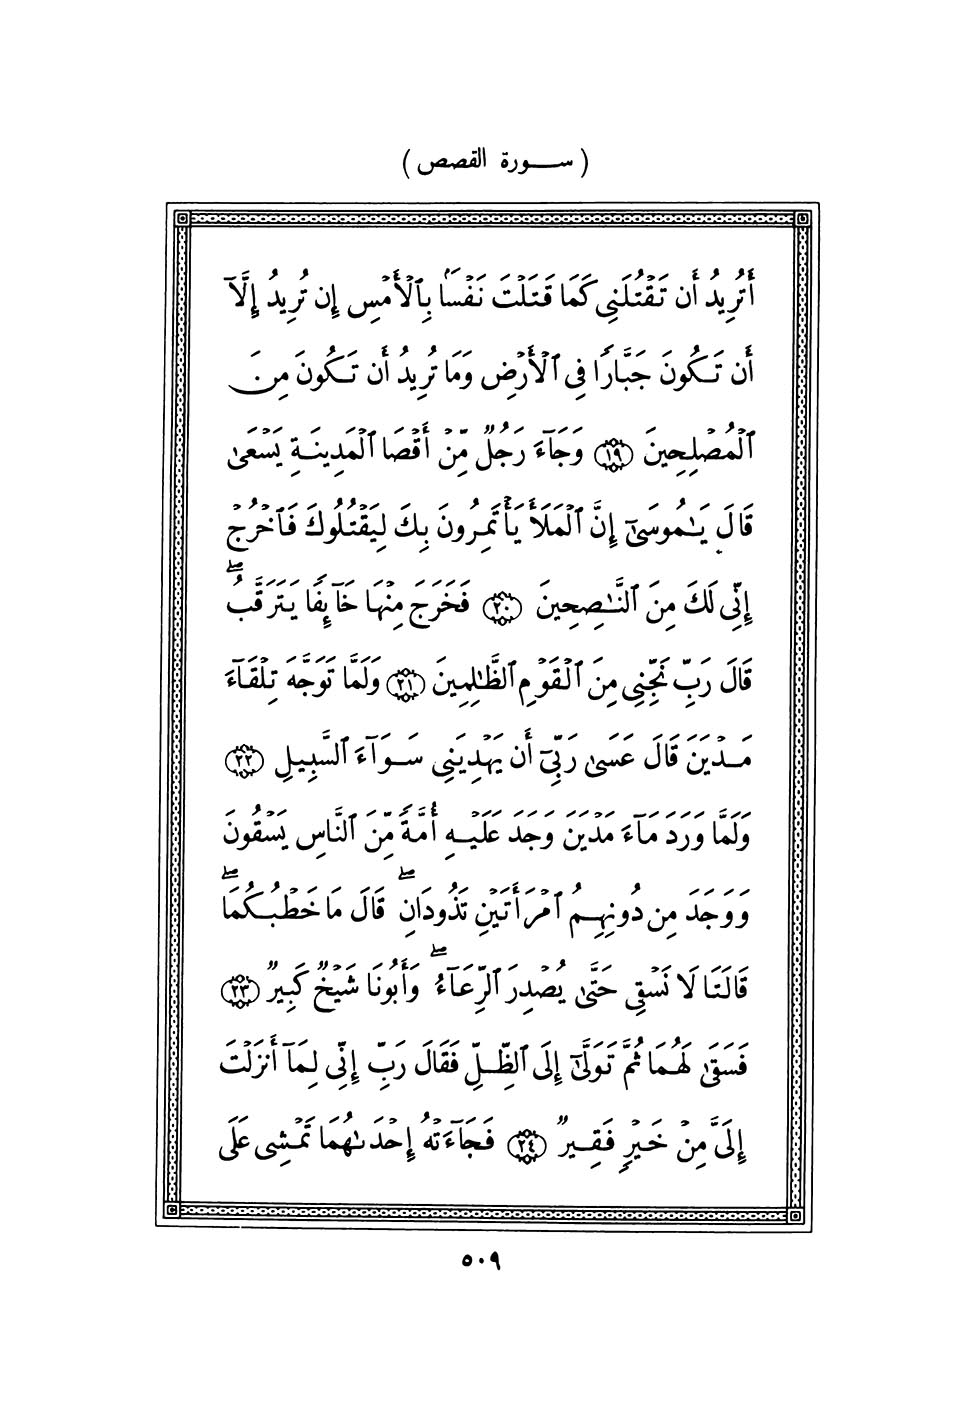 ( ســـورة القصص )
أَتُرِيدُ أَن تَقْتُلَنِى كَمَا قَتَلْتَ نَفْسًۢا بِٱلْأَمْسِ إِن تُرِيدُ إِلَّآ
أَن تَكُونَ جَبَّارًا فِى ٱلْأَرْضِ وَمَا تُرِيدُ أَن تَكُونَ مِنَ
ٱلْمُصْلِحِينَ ۝١٩ وَجَآءَ رَجُلٌ مِّنْ أَقْصَا ٱلْمَدِينَةِ يَسْعَىٰ
قَالَ يَـٰمُوسَىٰٓ إِنَّ ٱلْمَلَأَ يَأْتَمِرُونَ بِكَ لِيَقْتُلُوكَ فَٱخْرُجْ
إِنِّى لَكَ مِنَ ٱلنَّـٰصِحِينَ ۝٢٠ فَخَرَجَ مِنْهَا خَآئِفًا يَتَرَقَّبُ ۖ
قَالَ رَبِّ نَجِّنِى مِنَ ٱلْقَوْمِ ٱلظَّـٰلِمِينَ ۝٢١ وَلَمَّا تَوَجَّهَ تِلْقَآءَ
مَدْيَنَ قَالَ عَسَىٰ رَبِّىٓ أَن يَهْدِيَنِى سَوَآءَ ٱلسَّبِيلِ ۝٢٢
وَلَمَّا وَرَدَ مَآءَ مَدْيَنَ وَجَدَ عَلَيْهِ أُمَّةً مِّنَ ٱلنَّاسِ يَسْقُونَ
وَوَجَدَ مِن دُونِهِمُ ٱمْرَأَتَيْنِ تَذُودَانِ ۖ قَالَ مَا خَطْبُكُمَا ۖ
قَالَتَا لَا نَسْقِى حَتَّىٰ يُصْدِرَ ٱلرِّعَآءُ ۖ وَأَبُونَا شَيْخٌ كَبِيرٌ ۝٢٣
فَسَقَىٰ لَهُمَا ثُمَّ تَوَلَّىٰٓ إِلَى ٱلظِّلِّ فَقَالَ رَبِّ إِنِّى لِمَآ أَنزَلْتَ
إِلَىَّ مِنْ خَيْرٍ فَقِيرٌ ۝٢٤ فَجَآءَتْهُ إِحْدَىٰهُمَا تَمْشِى عَلَى
٥٠٩